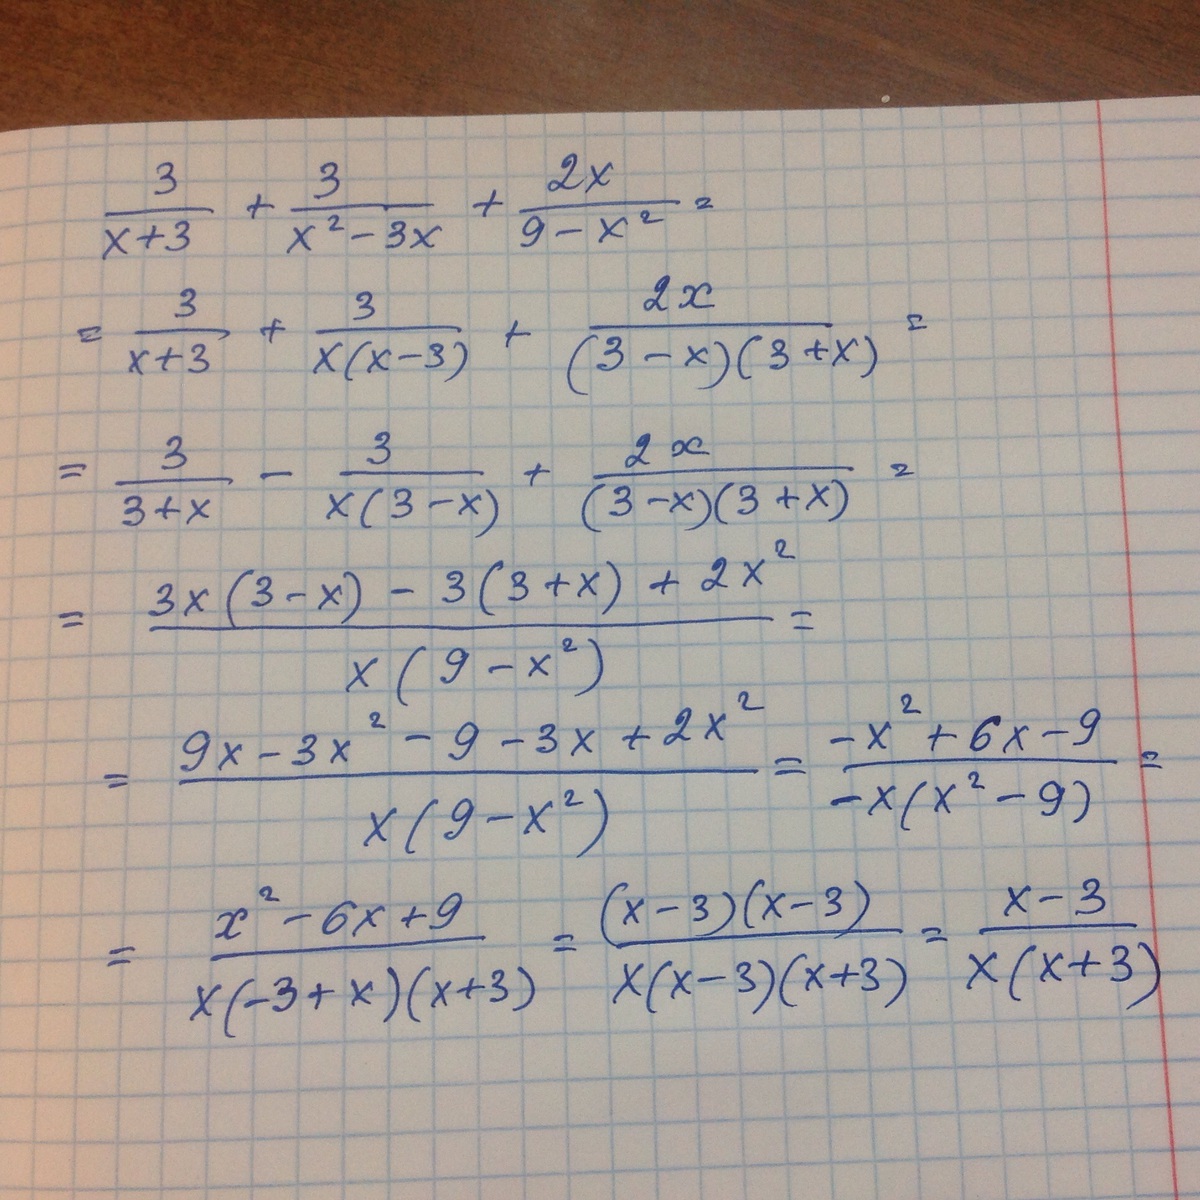 3/(x+3) + 3/(x²-3x) + 2x/(9-x²) =
= 3/(x+3) + 3/(x(x-3)) + 2x/((3-x)(3+x)) =
= 3/(3+x) - 3/(x(3-x)) + 2x/((3-x)(3+x)) =
= (3x(3-x) - 3(3+x) + 2x²)/(x(9-x²)) =
= (9x-3x²-9-3x+2x²)/(x(9-x²)) = (-x²+6x-9)/(-x(x²-9)) =
= (x²-6x+9)/(x(-3+x)(x+3)) = ((x-3)(x-3))/(x(x-3)(x+3)) = (x-3)/(x(x+3))